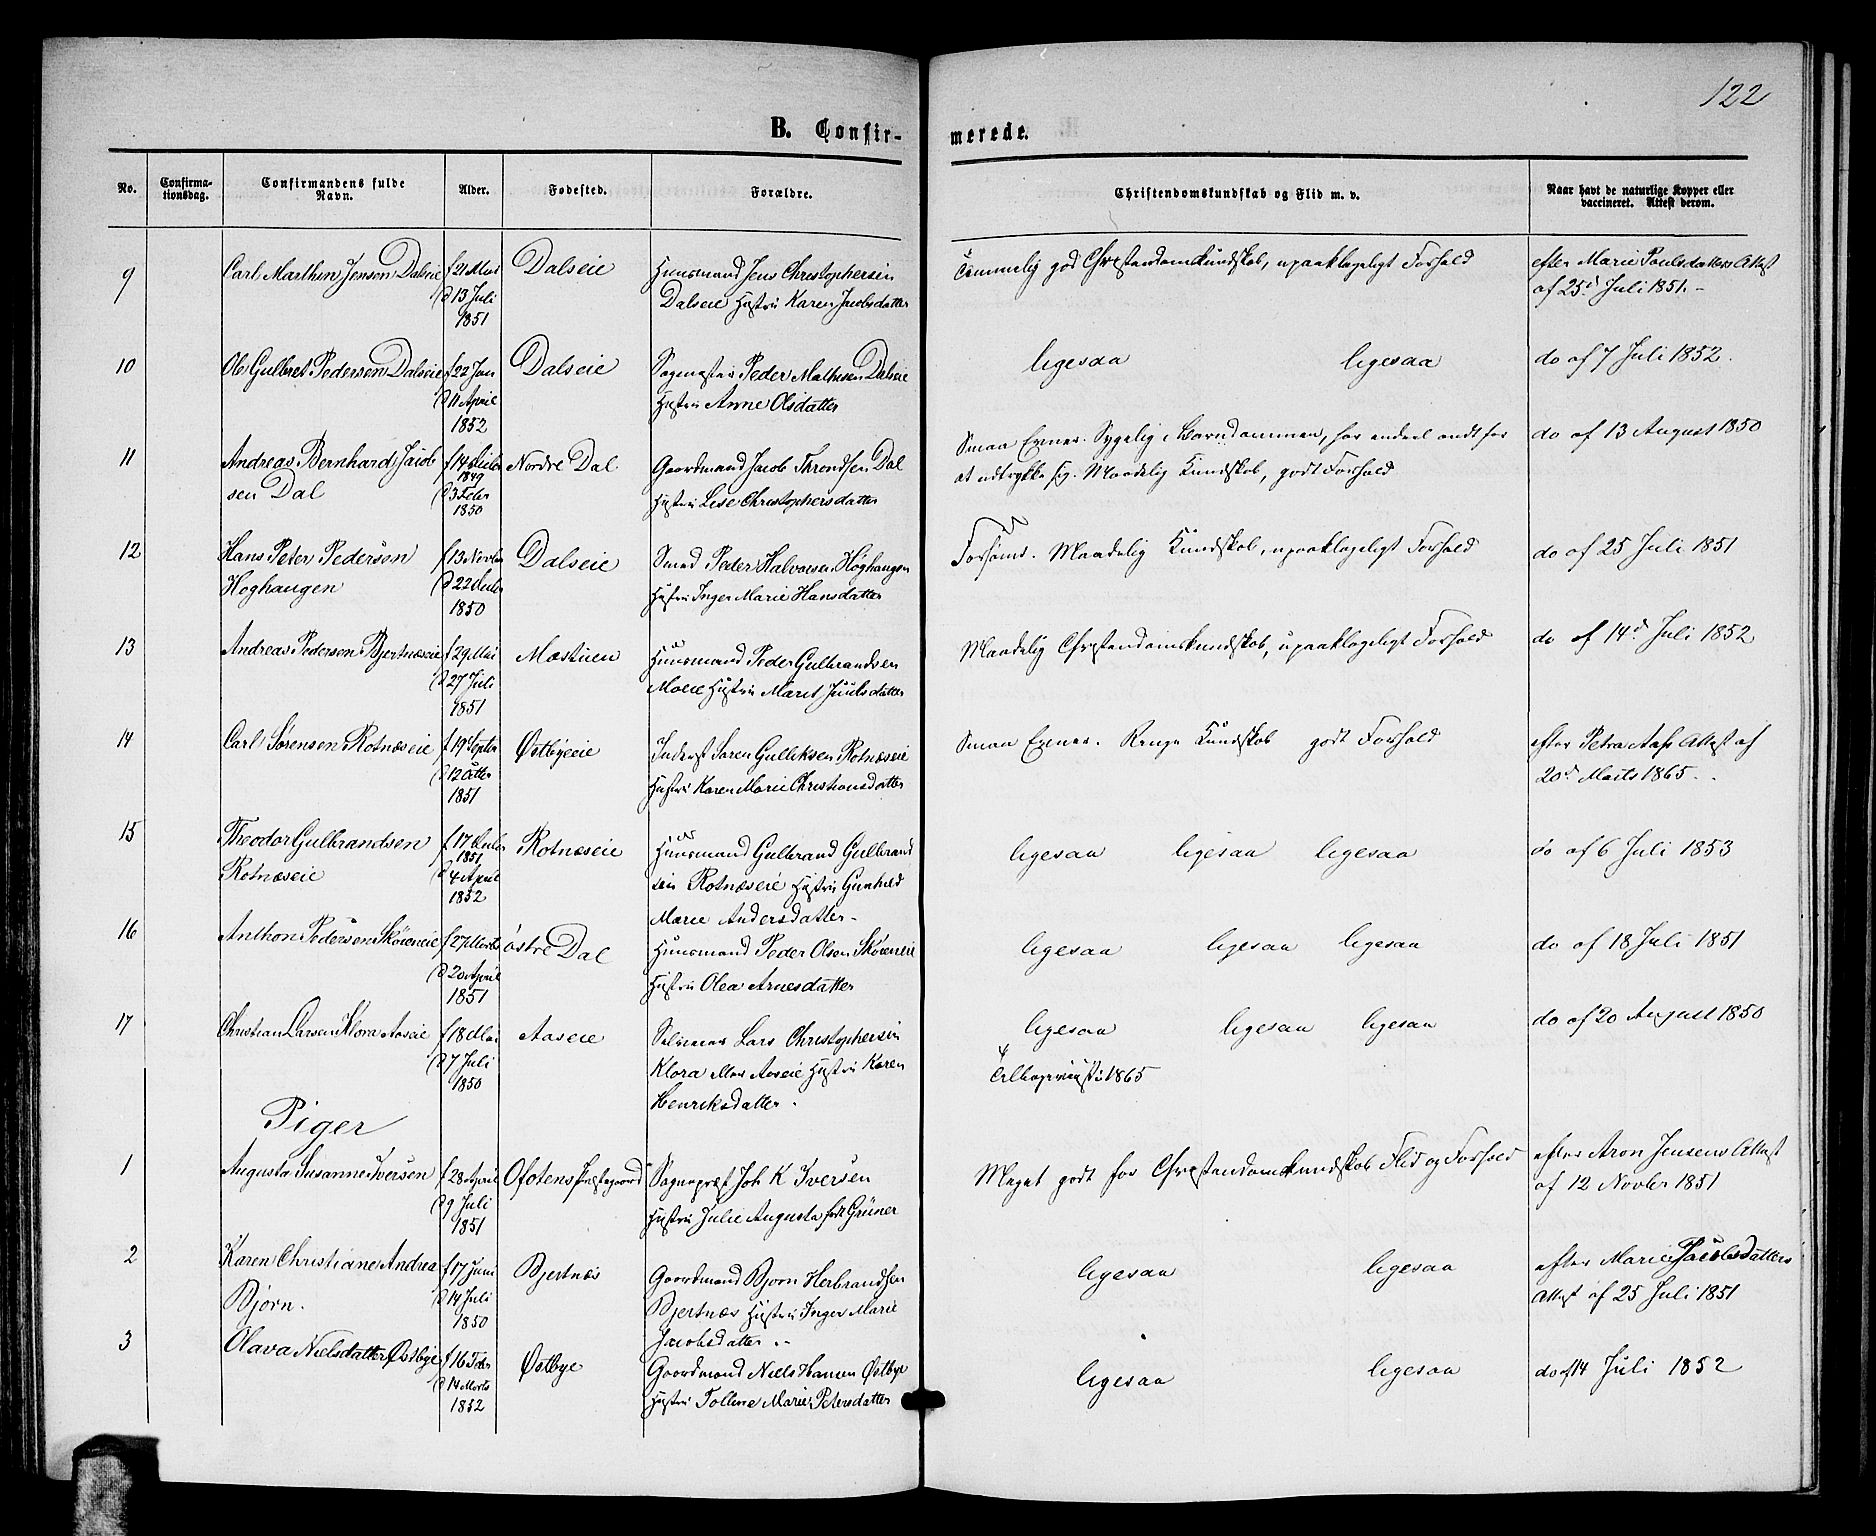 122
B. Confir-
merede.
No.
Confirma-
tionsdag.
Confirmandens fulde
Navn.
Alder.
Fødested.
Forældre.
Christendomskundskab og Flid m. v.
Naar havt de naturlige Kopper eller
vaccineret. Attest derom.
9
Carl Marthin Jensen Dalseie
f 21 Mai
D 13 Juli
1851
Dalseie
Huusmand Jens Christophersen
Dalseie Hustru Karen Jacobsdatter
Temmelig god Christendomskundskab, upaaklageligt Forhold
efter Marie Paulsdatters Attest
af 25d Juli 1851.-
10
Ole Gulbret Pedersen Dalseie
f 22 Jan
D 11 April
1852
Dalseie
Sagmester Peder Mathesen Dalseie
Hustru Anne Olsdatter
ligesaa ligesaa
do af 7 Juli 1852.
11
Andreas Bernhard Jacob
sen Dal
f 14 Decbr
1849
D 3 Febr
1850
Nordre Dal
Gaardmand Jacob Throndsen Dal
Hustru Lise Christophersdatter
Smaa Evner. Sygelig i Barndommen, har endeel ondt for
at udtrykke sig. Maadelig Kundskab, godt Forhold
do af 13 August 1850
12
Hans Peter Pedersen
Høghaugen
f 13 Novbr
D 22 Decbr
1850
Dalseie
Smed Peder Halvorsen Høghaugen
Hustru Inger Marie Hansdatter
Forsømt. Maadelig Kundskab, upaaklageligt Forhold
do af 25 Juli 1851
13
Andreas Pedersen Bjertnæseie
f 29 Mai
D 27 Juli
1851
Mæstuen
Huusmand Peder Gulbrandsen
Moeie Hustru Maret Juulsdatter
Maadelig Christendomskundskab, upaaklageligt Forhold
do af 14d Juli 1852
14
Carl Sørensen Rotnæseie
f 19 Septbr
D 12 Octbr
1851
Østbyeeie
Inderst Søren Gulliksen Rotnæseie
Hustru Karen Marie Christiansdatter
Smaa Evner. Ringe Kundskab godt Forhold
efter Petra Aass Attest af
20d Marts 1865.
15
Theodor Gulbrandsen
Rotnæseie
f 17 Decbr
1851
D 4 April
1852
Rotnæseie
Huusmand Gulbrand Gulbrand
sen Rotnæseie Hustru Gunhild
Marie Andersdatter-
ligesaa ligesaa ligesaa
do af 6 Juli 1853
16
Anthon Pedersen Skøieneie
f 27 Marts
D 20 April
1851
østre Dal
Huusmand Peder Olsen Skøieneie
Hustru Olea Arnesdatter
ligesaa ligesaa ligesaa
do af 18 Juli 1851
17
Christian Larsen Klora Aaseie
f 18 Mai
D 7 Juli
1850
Aaseie
Lars Christophersen
Klora Aaseie Hustru Karen
Henriksdatter.
ligesaa ligesaa ligesaa
Tilbageviist i 1865
do af 20 August 1850
Piger
1
Augusta Susanne Iversen
f 28 April
D 9 Juli
1851
Ofotens Præstegaard
Sognepræst Joh K Iversen
Hustru Julie Augusta født Grüner
Meget godt for Christendomskundskab Flid og Forhold
efter Aron Jensens Attest
af 12 Novbr 1851
2
Karen Christiane Andrea
Bjørn.
f 17 Juni
D 14 Juli
1850
Bjertnæs
Gaardmand Bjørn Herbrandsen
Bjertnæs Hustru Inger Marie
Jacobsdatter.
ligesaa ligesaa
efter Marie Jacobsdatters
Attest af 25 Juli 1851
3
Olava Nielsdatter Østbye
f 16 Febr
D 14 Marts
1852
Østbye
Gaardmand Niels Hansen Østbye
Hustru Polline Marie Petersdatter
ligesaa ligesaa
do af 14 Juli 1852